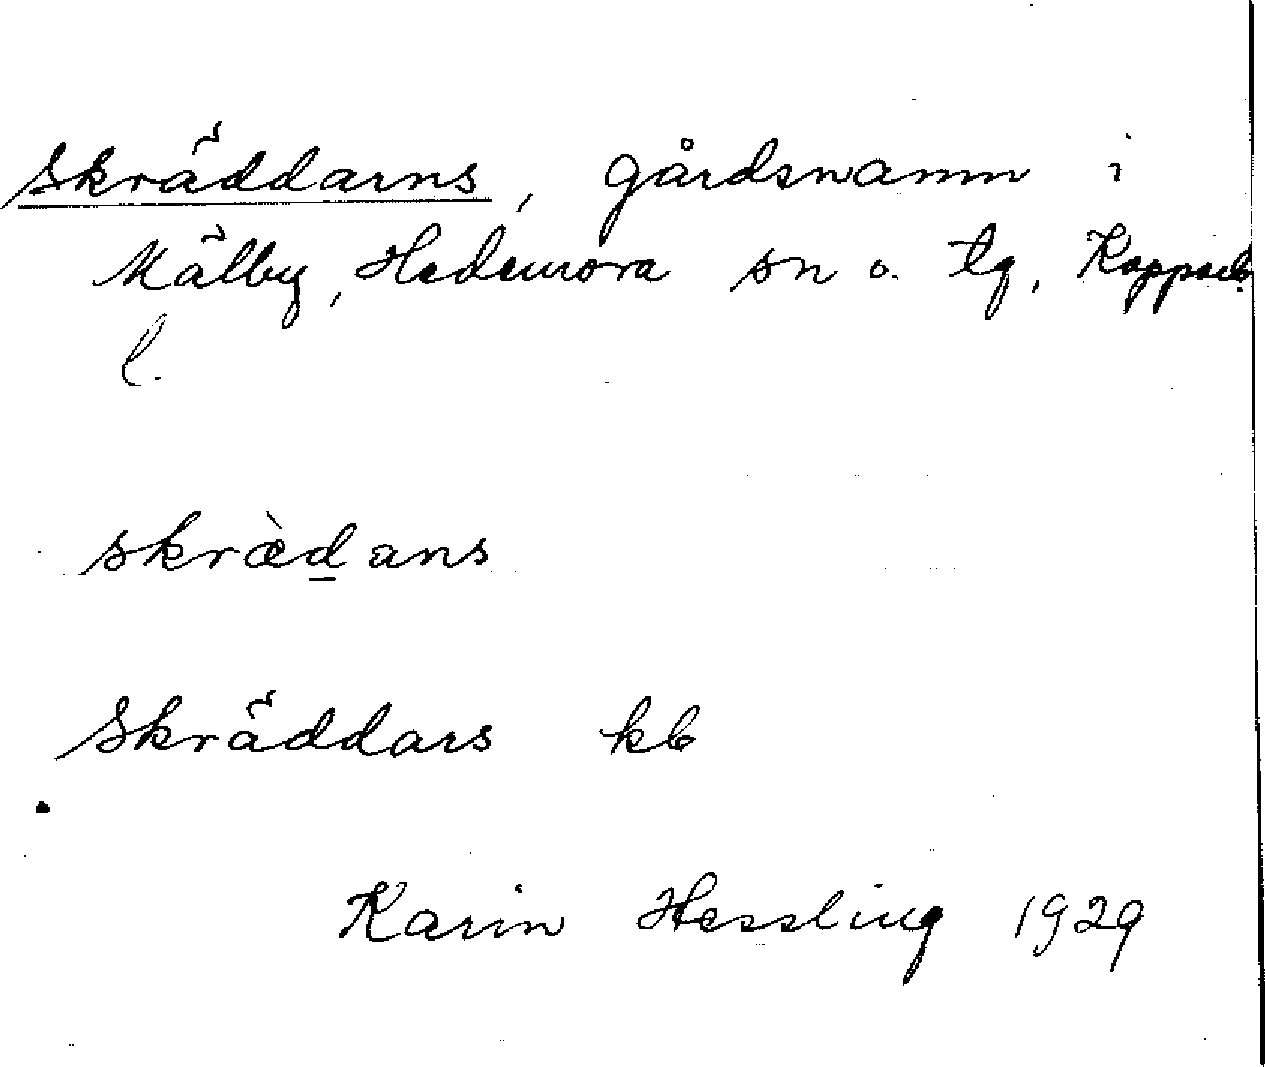 Skräddarns, gårdsnamn i
Mälby, Hedemora sn o. tg, Kopparb.
l.
skræ̀d̲ans
Skräddars kb
Karin Hessling 1929